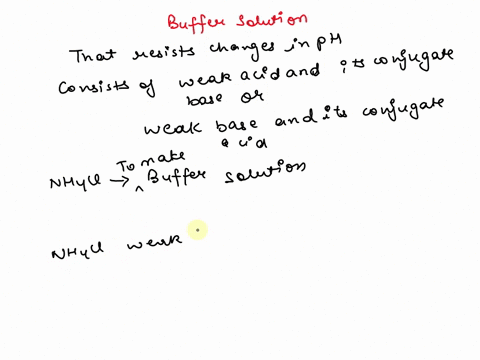 Buffer solution
That resists changes in pH
Consists of weak acid and its conjugate
base or
weak base and its conjugate
acid
To make
NH4Cl → ^ Buffer solution
NH4Cl weak